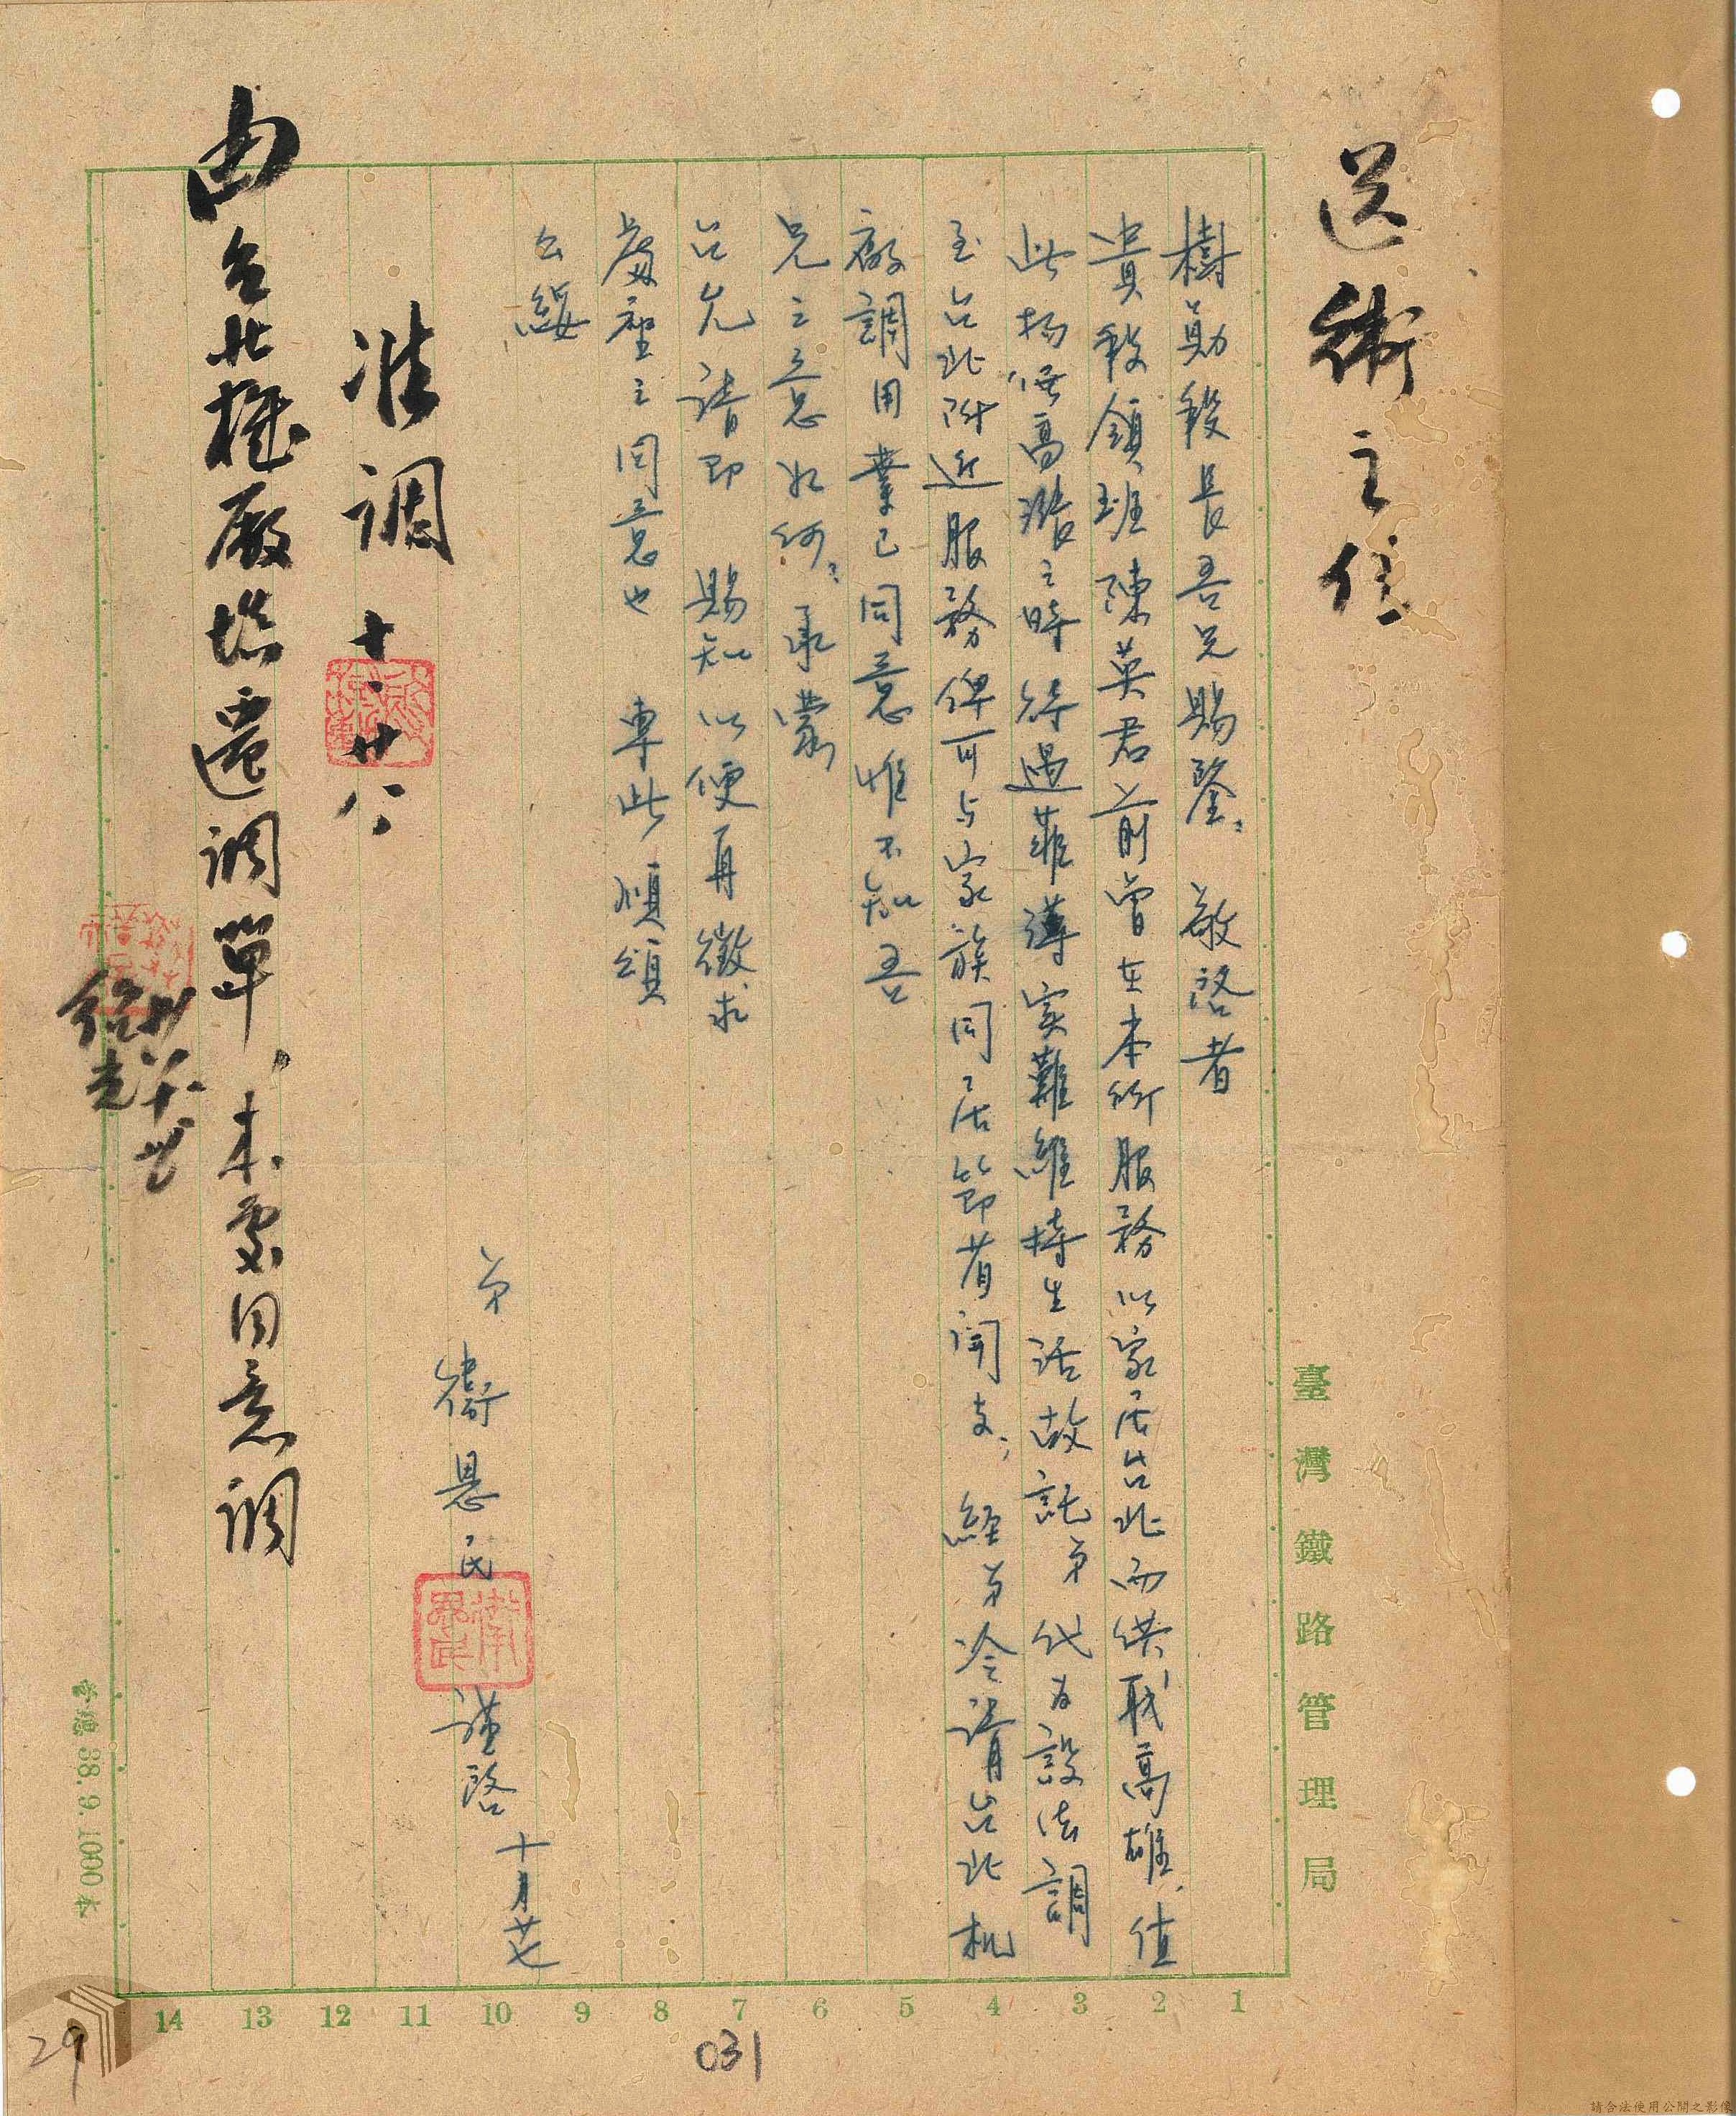 送衛主任
樹勛段長吾兄賜鑒：敬啓者
貴段領班陳英君前曾在本所服務以家居台北而供职高雄，值
此物價高漲之時待遇菲薄实難維持生活故託弟代为設法調
至台北附近服務俾可与家族同居節省開支，経弟冷請台北机
廠調用業已同意惟不知吾
兄之意如何？承蒙
台允請即　賜知以便再徵求
處座之同意也　專此　順頌
公綏
弟　衛思民　謹啓　十月廿七
准調　十．廿八
由台北機厰填遷調單，本處同意調
臺灣鐵路管理局
管總 38. 9. 1000本
1 2 3 4 5 6 7 8 9 10 11 12 13 14
031
29
請合法使用公開之影像